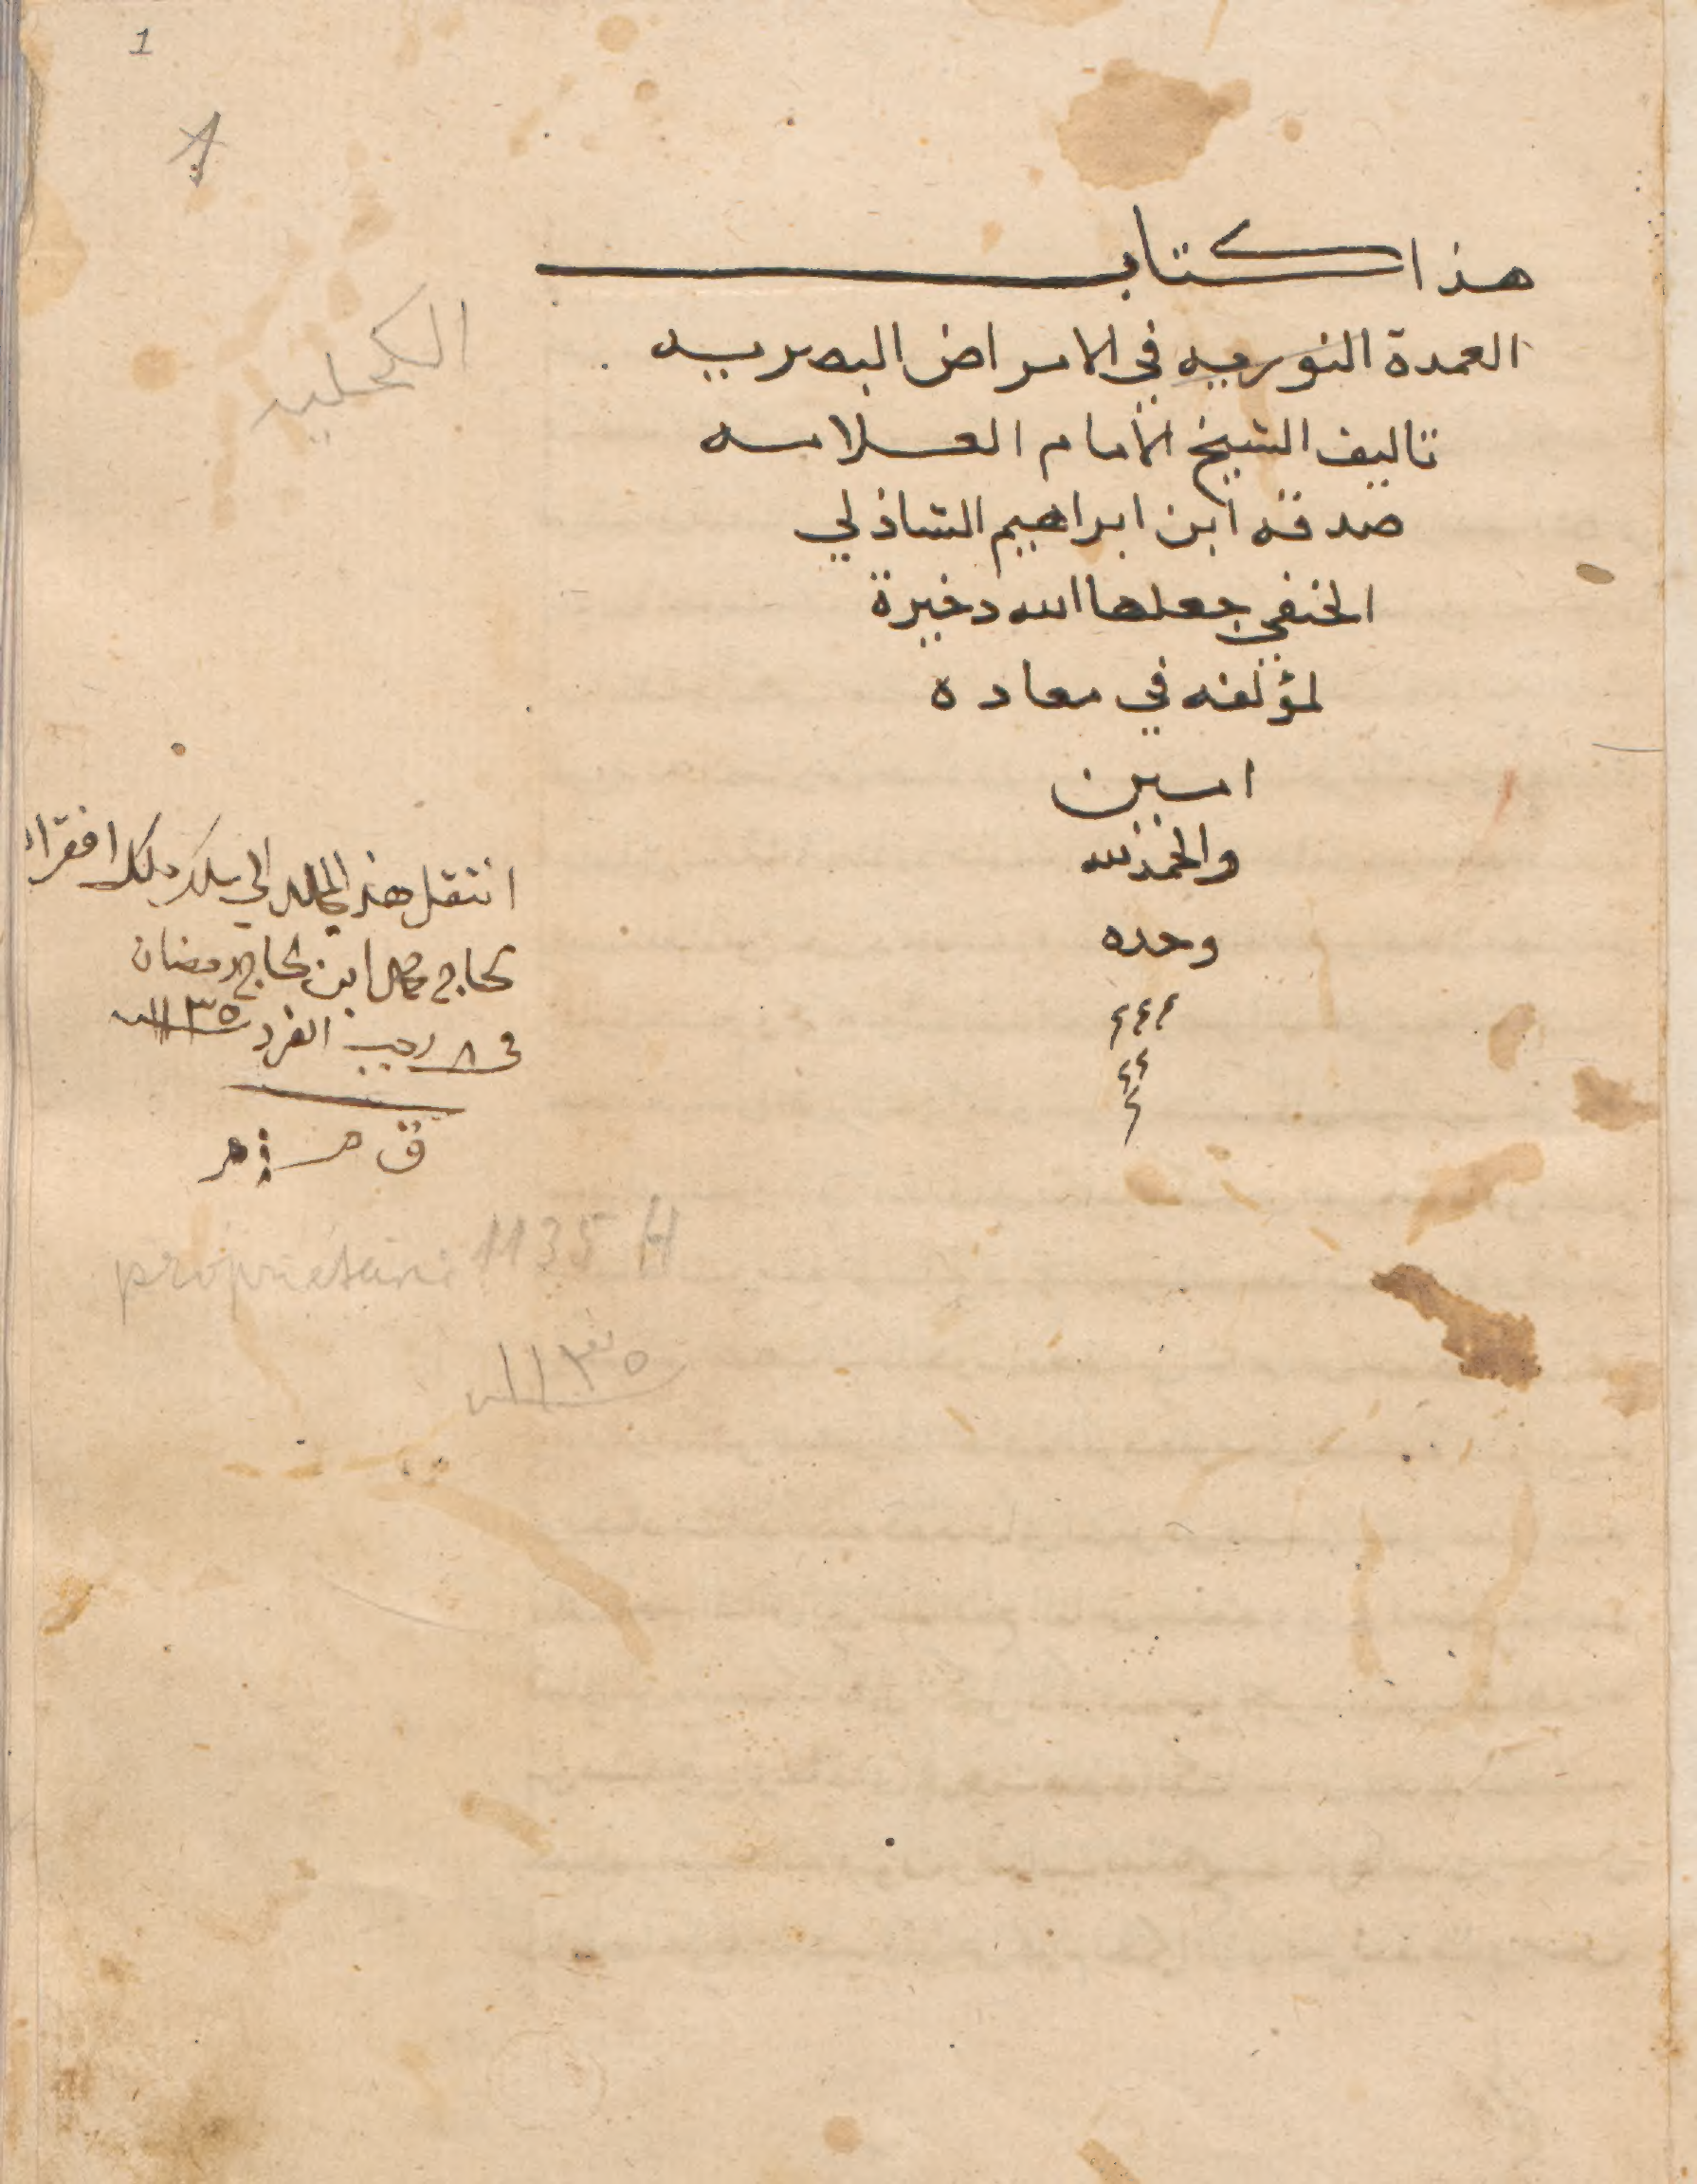 1
هذا كتاب
العمدة النوريه في الامراض البصريه
تاليف الشيخ الامام العلامه
صدقه ابن ابراهيم الشاذلي
الحنفي جعلها الله دخيرة
لمؤلفه في معاده
امين
والحمد لله
وحده
الكحليه
انتقل هذ الى ملك افقراء
الحاج ابن الحاج رمضان
في ٨ رجب الفرد ١١٣٥
propriétaire 1135 H
١١٣٥